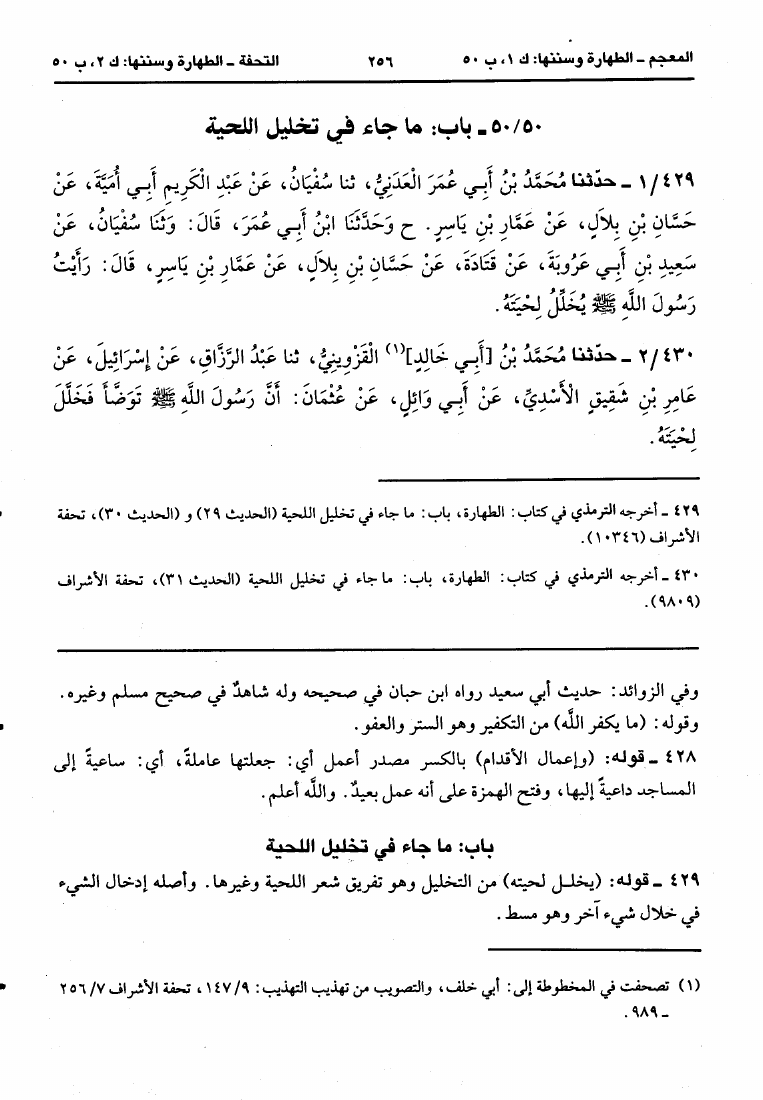 المعجم - الطهارة وسننها: ك ١، ب ٥٠
٢٥٦
التحفة - الطهارة وسننها: ك ٢، ب ٥٠
٥٠/٥٠ - باب: ما جاء في تخليل اللحية
١/٤٢٩ - حدّثنا مُحَمَّدُ بْنُ أَبِي عُمَرَ الْعَدَنِيُّ، ثنا سُفْيَانُ، عَنْ عَبْدِ الْكَرِيمِ أَبِي أُمَيَّةَ، عَنْ
حَسَّانِ بْنِ بِلاَلٍ، عَنْ عَمَّارِ بْنِ يَاسِرٍ. ح وَحَدَّثَنَا ابْنُ أَبِي عُمَرَ، قَالَ: وَثَنَا سُفْيَانُ، عَنْ
سَعِيدِ بْنِ أَبِي عَرُوبَةَ، عَنْ قَتَادَةَ، عَنْ حَسَّانِ بْنِ بِلاَلٍ، عَنْ عَمَّارِ بْنِ يَاسِرٍ، قَالَ: رَأَيْتُ
رَسُولَ اللَّهِ ﷺ يُخَلِّلُ لِحْيَتَهُ.
٢/٤٣٠ - حدّثنا مُحَمَّدُ بْنُ [أَبِي خَالِدٍ](١) الْقَزْوِينِيُّ، ثنا عَبْدُ الرَّزَّاقِ، عَنْ إِسْرَائِيلَ، عَنْ
عَامِرِ بْنِ شَقِيقٍ الْأَسْدِيِّ، عَنْ أَبِي وَائِلٍ، عَنْ عُثْمَانَ: أَنَّ رَسُولَ اللَّهِ ﷺ تَوَضَّأَ فَخَلَّلَ
لِحْيَتَهُ.
٤٢٩ - أخرجه الترمذي في كتاب: الطهارة، باب: ما جاء في تخليل اللحية (الحديث ٢٩) و (الحديث ٣٠)، تحفة
الأشراف (١٠٣٤٦).
٤٣٠ - أخرجه الترمذي في كتاب: الطهارة، باب: ما جاء في تخليل اللحية (الحديث ٣١)، تحفة الأشراف
(٩٨٠٩).
وفي الزوائد: حديث أبي سعيد رواه ابن حبان في صحيحه وله شاهدٌ في صحيح مسلم وغيره.
وقوله: (ما يكفر اللَّه) من التكفير وهو الستر والعفو.
٤٢٨ - قوله: (وإعمال الأقدام) بالكسر مصدر أعمل أي: جعلتها عاملةً، أي: ساعيةً إلى
المساجد داعيةً إليها، وفتح الهمزة على أنه عمل بعيدٌ. واللَّه أعلم.
باب: ما جاء في تخليل اللحية
٤٢٩ - قوله: (يخلل لحيته) من التخليل وهو تفريق شعر اللحية وغيرها. وأصله إدخال الشيء
في خلال شيء آخر وهو مسط.
(١) تصحفت في المخطوطة إلى: أبي خلف، والتصويب من تهذيب التهذيب: ١٤٧/٩، تحفة الأشراف ٢٥٦/٧
- ٩٨٩.